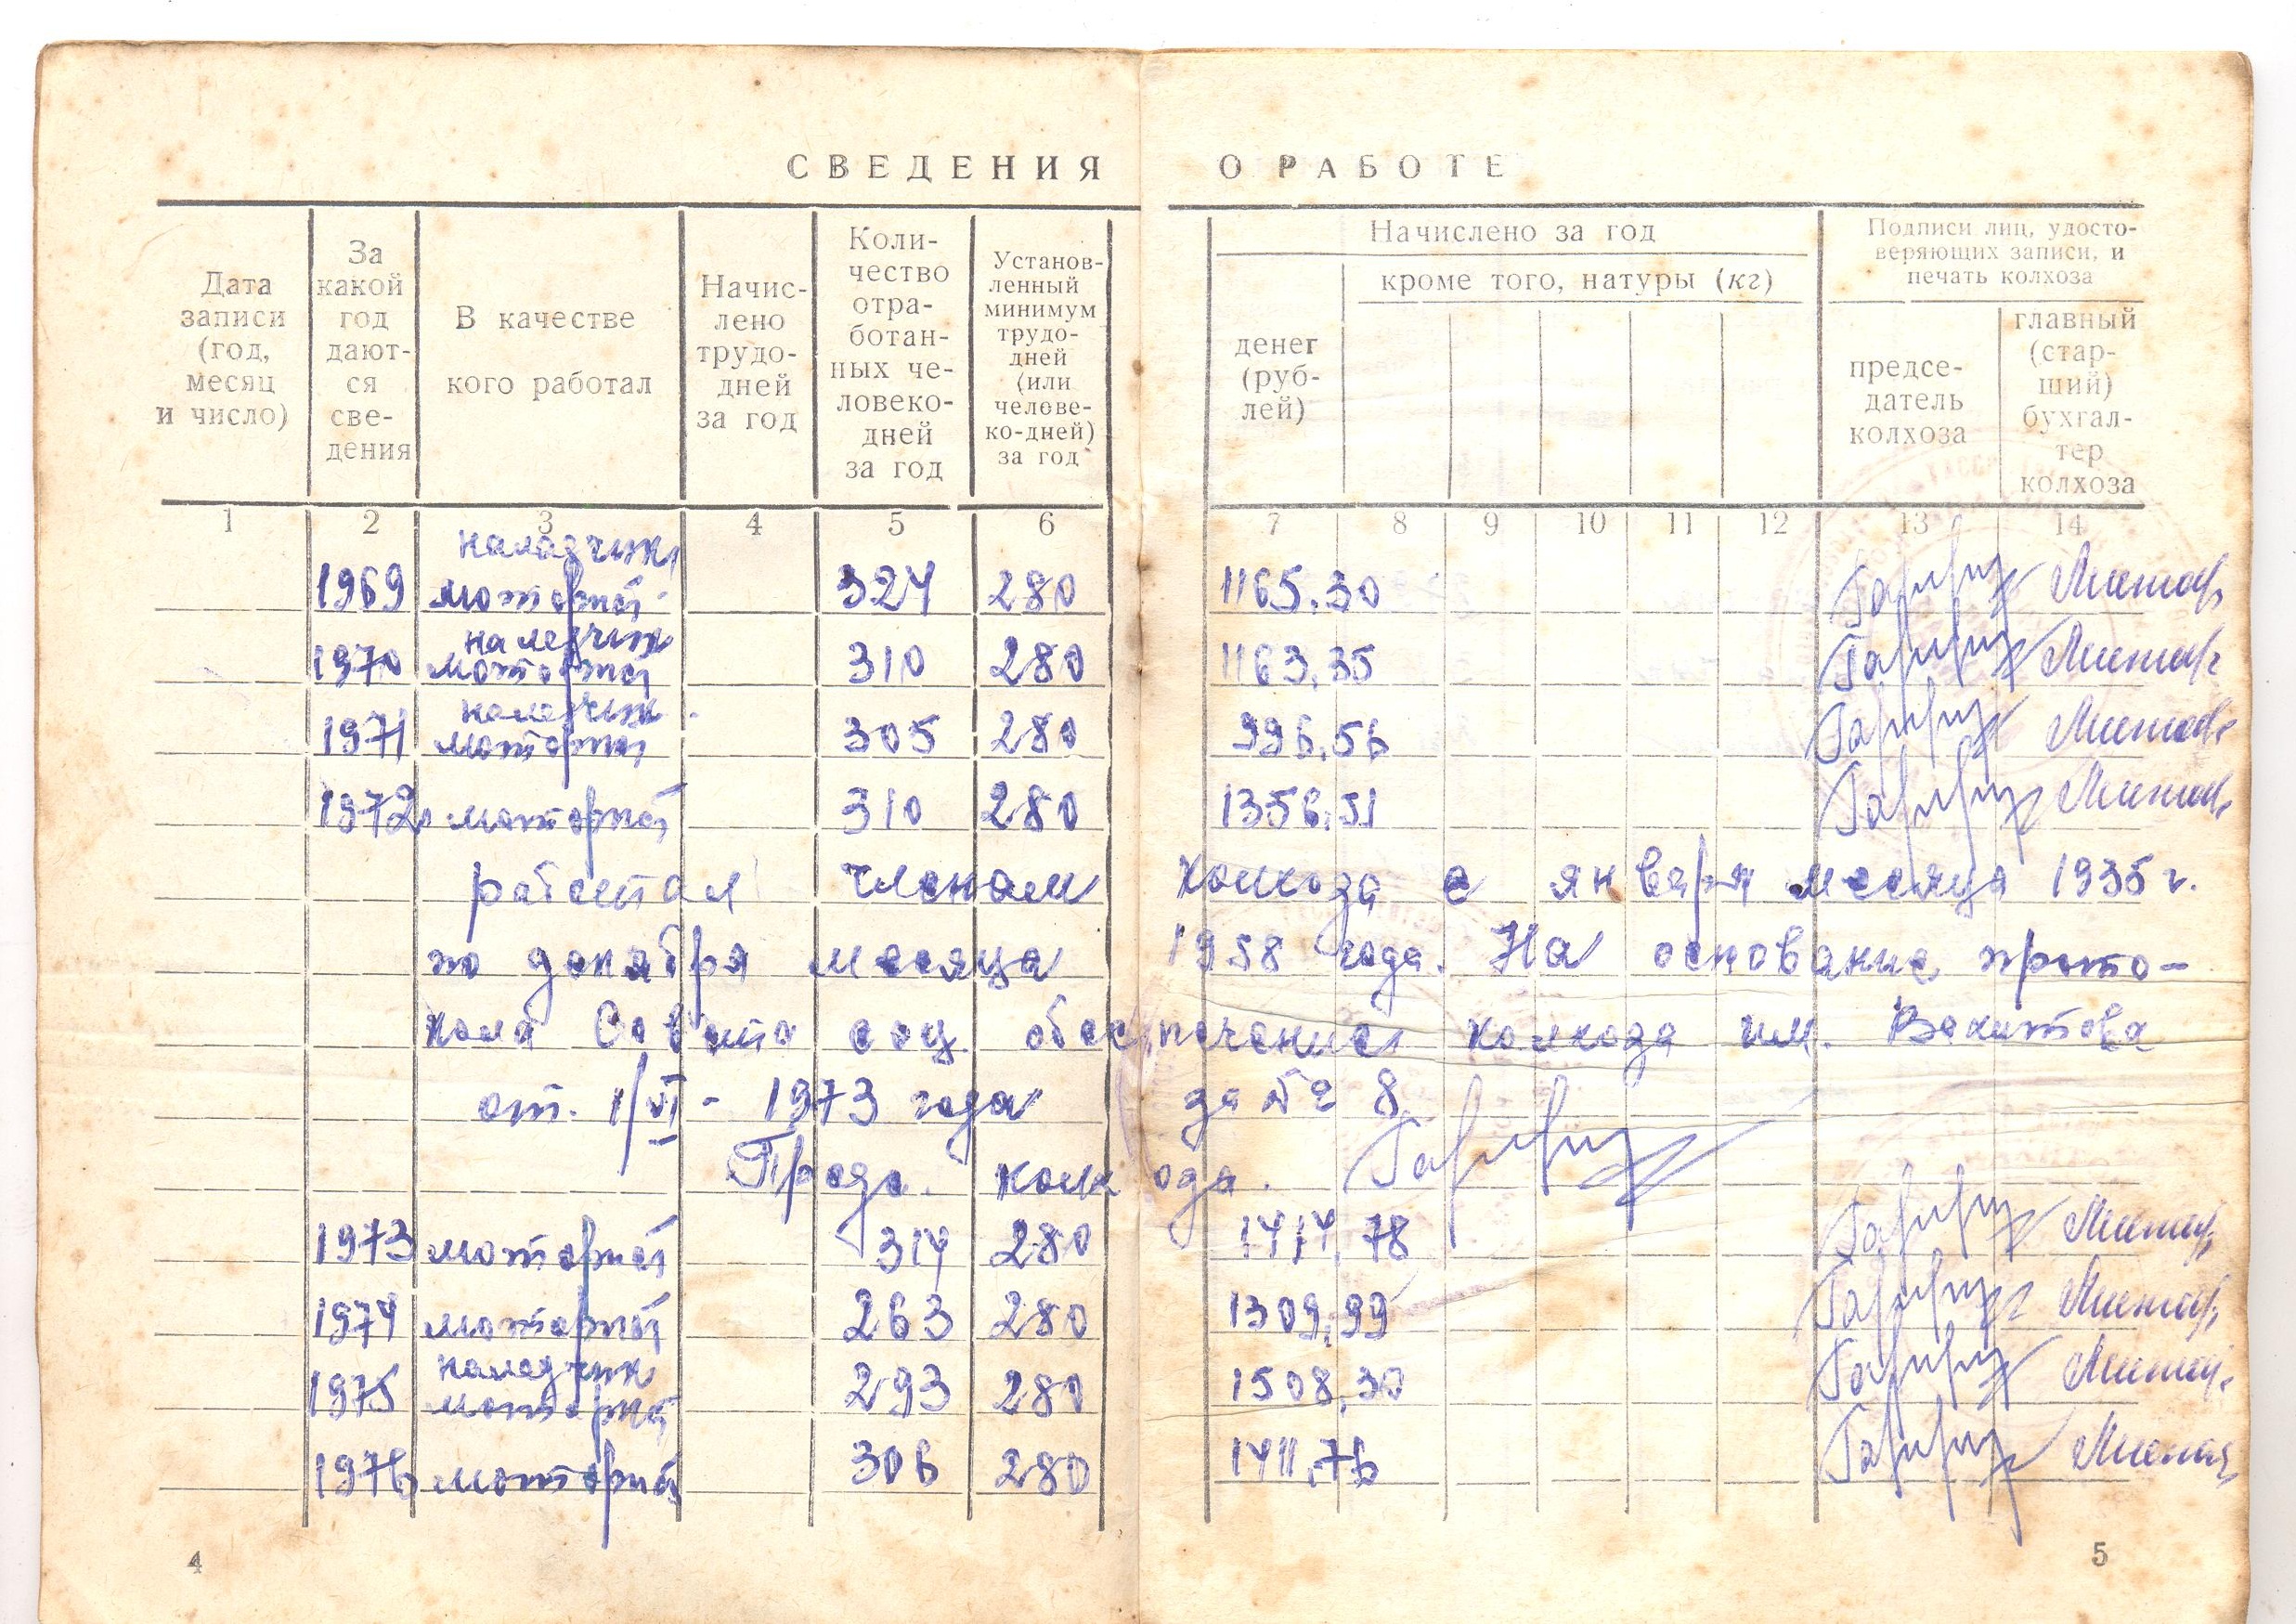 СВЕДЕНИЯ О РАБОТЕ
Дата записи (год, месяц и число)
За какой год даются сведения
В качестве кого работал
Начислено трудодней за год
Количество отработанных человеко-дней за год
Установленный минимум трудодней (или человеко-дней) за год
Начислено за год
денег (рублей)
кроме того, натуры (кг)
Подписи лиц, удостоверяющих записи, и печать колхоза
председатель колхоза
главный (старший) бухгалтер колхоза
1 2 3 4 5 6 7 8 9 10 11 12 13 14
наладчик
1969 моторной 324 280 1165.30
наледчик
1970 моторной 310 280 1163.35
наледчик
1971 моторной 305 280 996.56
1972 моторной 310 280 1356.51
работал членам колхоза с января месяца 1935 г.
по декабря месяца 1958 года. На основание прото-
кола Совета соц. обеспечения колхоза им. Вахитова
от. 1/VI - 1973 года за № 8
Предс. колхода.
1973 моторной 314 280 1414.78
1974 моторной 263 280 1309.99
наледчик
1975 моторной 293 280 1508.30
1976 моторной 306 280 1411.76
4 5